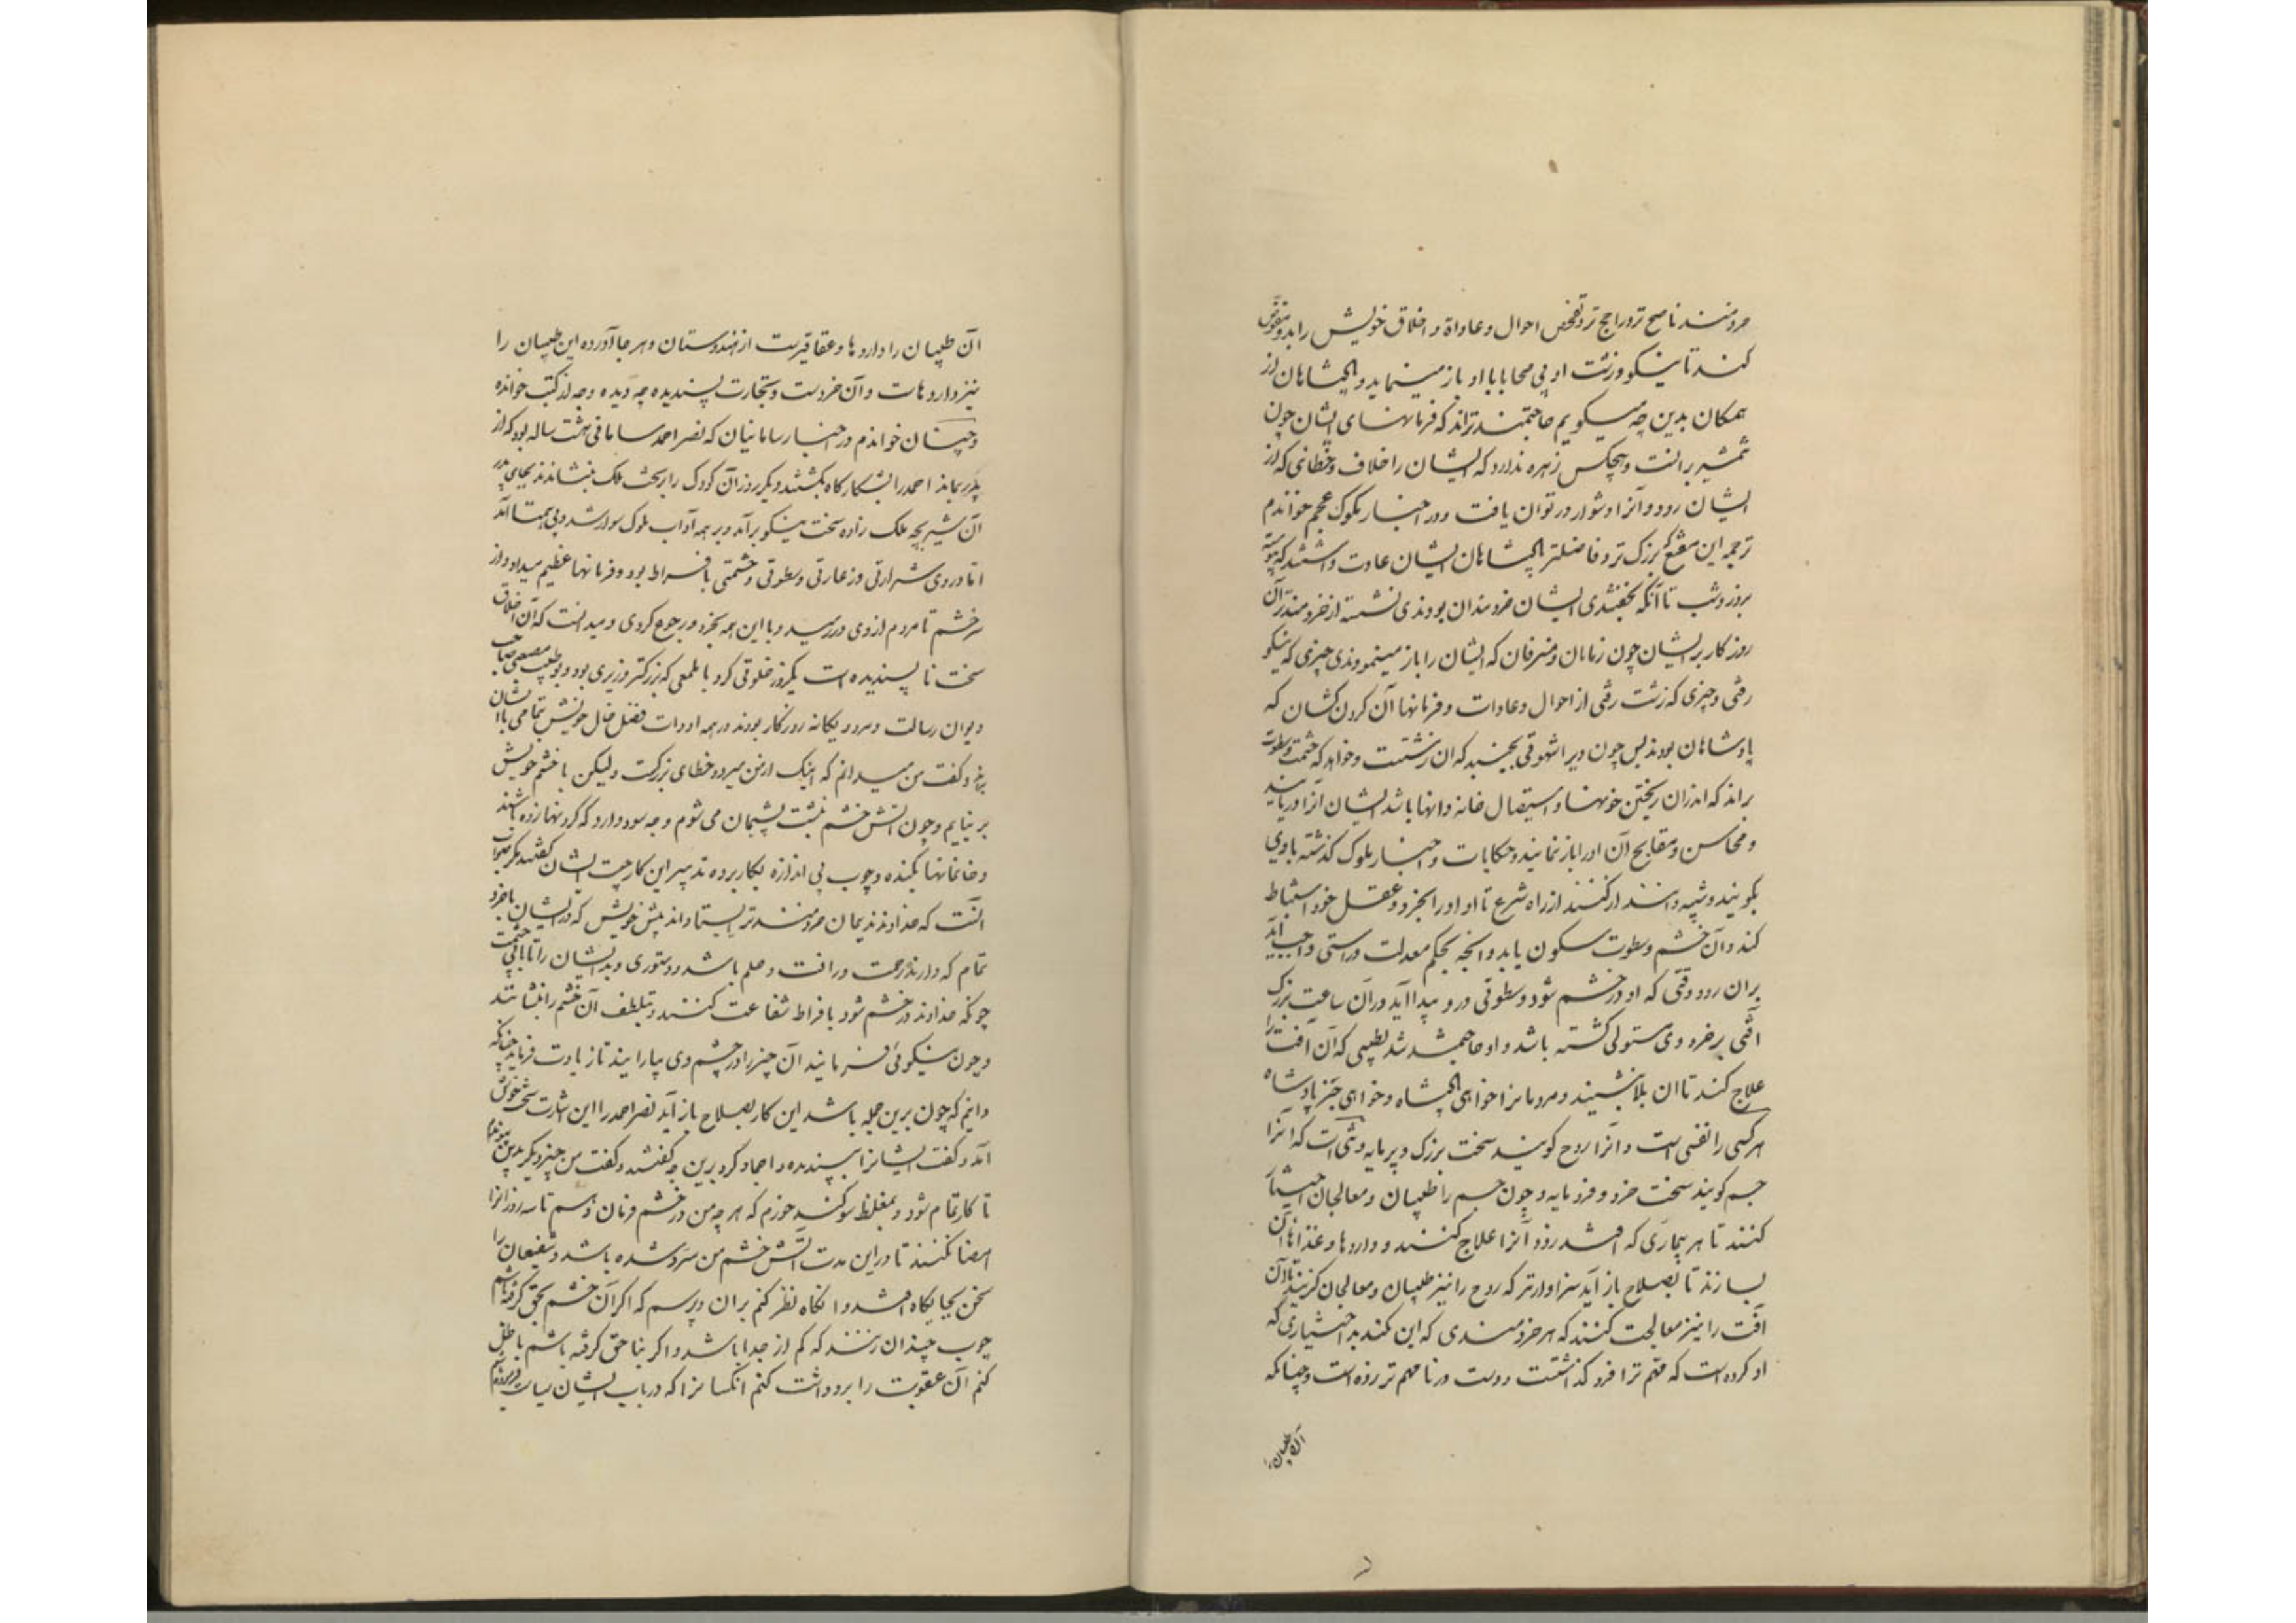 خردمند ناصح تر و راجح تر و تفحص احوال و عاداة و اخلاق خویش را بدو مفوض
کند تا نیکو و زشت او بی محابا با او باز مینماید و پادشاهان از
همکان بدین چه میکویم حاجتمندتراند که فرمانهای ایشان چون
شمشیر برانست و هیچکس زهره ندارد که ایشان را خلاف و خطائی که از
ایشان رود و آنرا دشوار در توان یافت و در اخبار ملوک عجم خواندم
ترجمه ابن مقفع که بزرک تر و فاضلتر پادشاهان ایشان عادت داشتند که پیوسته
بروز و شب تا آنکه بخفتندی ایشان خردمندان بودندی نشسته از خردمندتر آن
روزکار بر ایشان چون زمامان و مشرفان که ایشان را باز مینمودندی چیزی که نیکو
رفتی و چیزی که زشت رفتی از احوال و عادات و فرمانها آن کردن کشان که
پادشاهان بودند پس چون ویرا شهوتی بجنبد که ان زشتست و خواهد که حشمت و سطوت
براند که اندران ریختن خونها و استیصال خانه دانها باشد ایشان آنرا دریابند
و محاسن و مقابح آن او را باز نمایند و حکایات و اخبار ملوک کذشته باوی
بکویند و تنبیه و انذار کنند از راه شرع تا او اورا بخرد و عقل خود استنباط
کند و آن خشم و سطوت سکون یابد و آنچه بحکم معدلت و راستی واجب آید
بران رود وقتی که او در خشم شود و سطوتی درو پیدا آید در آن ساعت بزرک
آفتی بر خرد وی مستولی کشته باشد و او حاجتمند شد بطبیبی که آن آفت را
علاج کند تا ان بلا بنشیند و مردمانرا خواهی پادشاه و خواهی جز پادشاه
هر کسی را نفسی است و آنرا روح کویند سخت بزرک و پرمایه و تنی است که آنرا
جسم کویند سخت خرد و فرومایه و چون جسم را طبیبان و معالجان اختیار
کنند تا هر بیماری که افتد زود آنرا علاج کنند و داروها و غذاهای آن
بسازند تا بصلاح باز آید سزاوارتر که روح را نیز طبیبان و معالجان کزینند تا آن
آفت را نیز معالجت کنند که هر خردمندی که این نکند بد اختیاری که
او کرده است که مهم تر را فرو کذاشتست و دست در نا مهم تر زده است و چنانکه
آن طبیبان را
آن طبیبان را داروها و عقاقیرست از هندوستان و هر جا آورده این طبیبان را
نیز داروهاست و آن خردست و تجارت پسندیده چه دیده و چه از کتب خوانده
و چنان خواندم در اخبار سامانیان که نصر احمد سامانی هشت ساله بود که از
پدر بماند احمد را بشکارکاه بکشتند و دیکر روز آن کودک را بر تخت ملک بنشاندند بجای پدر
آن شیر بچه ملک زاده سخت نیکو برآمد و بر همه آداب ملوک سوار شد و بی همتا آمد
اما در وی شرارتی و زعارتی و سطوتی و حشمتی بافراط بود و فرمانها عظیم میداد و از
سر خشم تا مردم از وی در رمیدند و با این همه بخرد رجوع کردی و میدانست که آن اخلاق
سخت نا پسندیده است یکروز خلوتی کرد با بلعمی که بزرکتر وزیری بود و بوطیب مصعبی صاحب
دیوان رسالت و هر دو یکانه روزکار بودند در همه ادوات فضل حال خویش بتمامی با ایشان
براند و کفت من میدانم که اینک از من میرود خطای بزرکست ولیکن با خشم خویش
بر نیایم و چون آتش خشم بنشست پشیمان می شوم و چه سود دارد که کردنها زده باشند
و خانمانها بکنده و چوب بی اندازه بکار برده تدبیر این کار چیست ایشان کفتند مکر صواب
آنست که خداوند ندیمان خردمندتر ایستاداند پیش خویش که در ایشان با خرد
تمام که دارند رحمت و رافت و حلم باشد و دستوری دهد ایشان را تا بی حشمت
چونکه خداوند در خشم شود بافراط شفاعت کنند و بتلطف آن خشم را بنشانند
و چون نیکوئی فرمایند آن چیز را در چشم وی بیارایند تا زیادت فرماید چنانکه
دانیم که چون برین جمله باشد این کار بصلاح باز آید نصر احمد را این اشارت سخت خوش
آمد و کفت ایشانرا بپسندید و احماد کرد برین چه کفتند و کفت من چیز دیکر بدین پیوندم
تا کار تمام شود و بمغلظ سوکند خورم که هر چه من در خشم فرمان دهم تا سه روز آنرا
امضا نکنند تا در این مدت آتش خشم من سرد شده باشد و شفیعان را
سخن بجایکاه افتد و انکاه نظر کنم بران و پرسم که اکر آن خشم بحق کرفته باشم
چوب چندان زنند که کم از حد باشد و اکر بناحق کرفته باشم باطل
کنم آن عقوبت را و برداشت کنم انکسانرا که در باب ایشان سیاست فرموده باشم